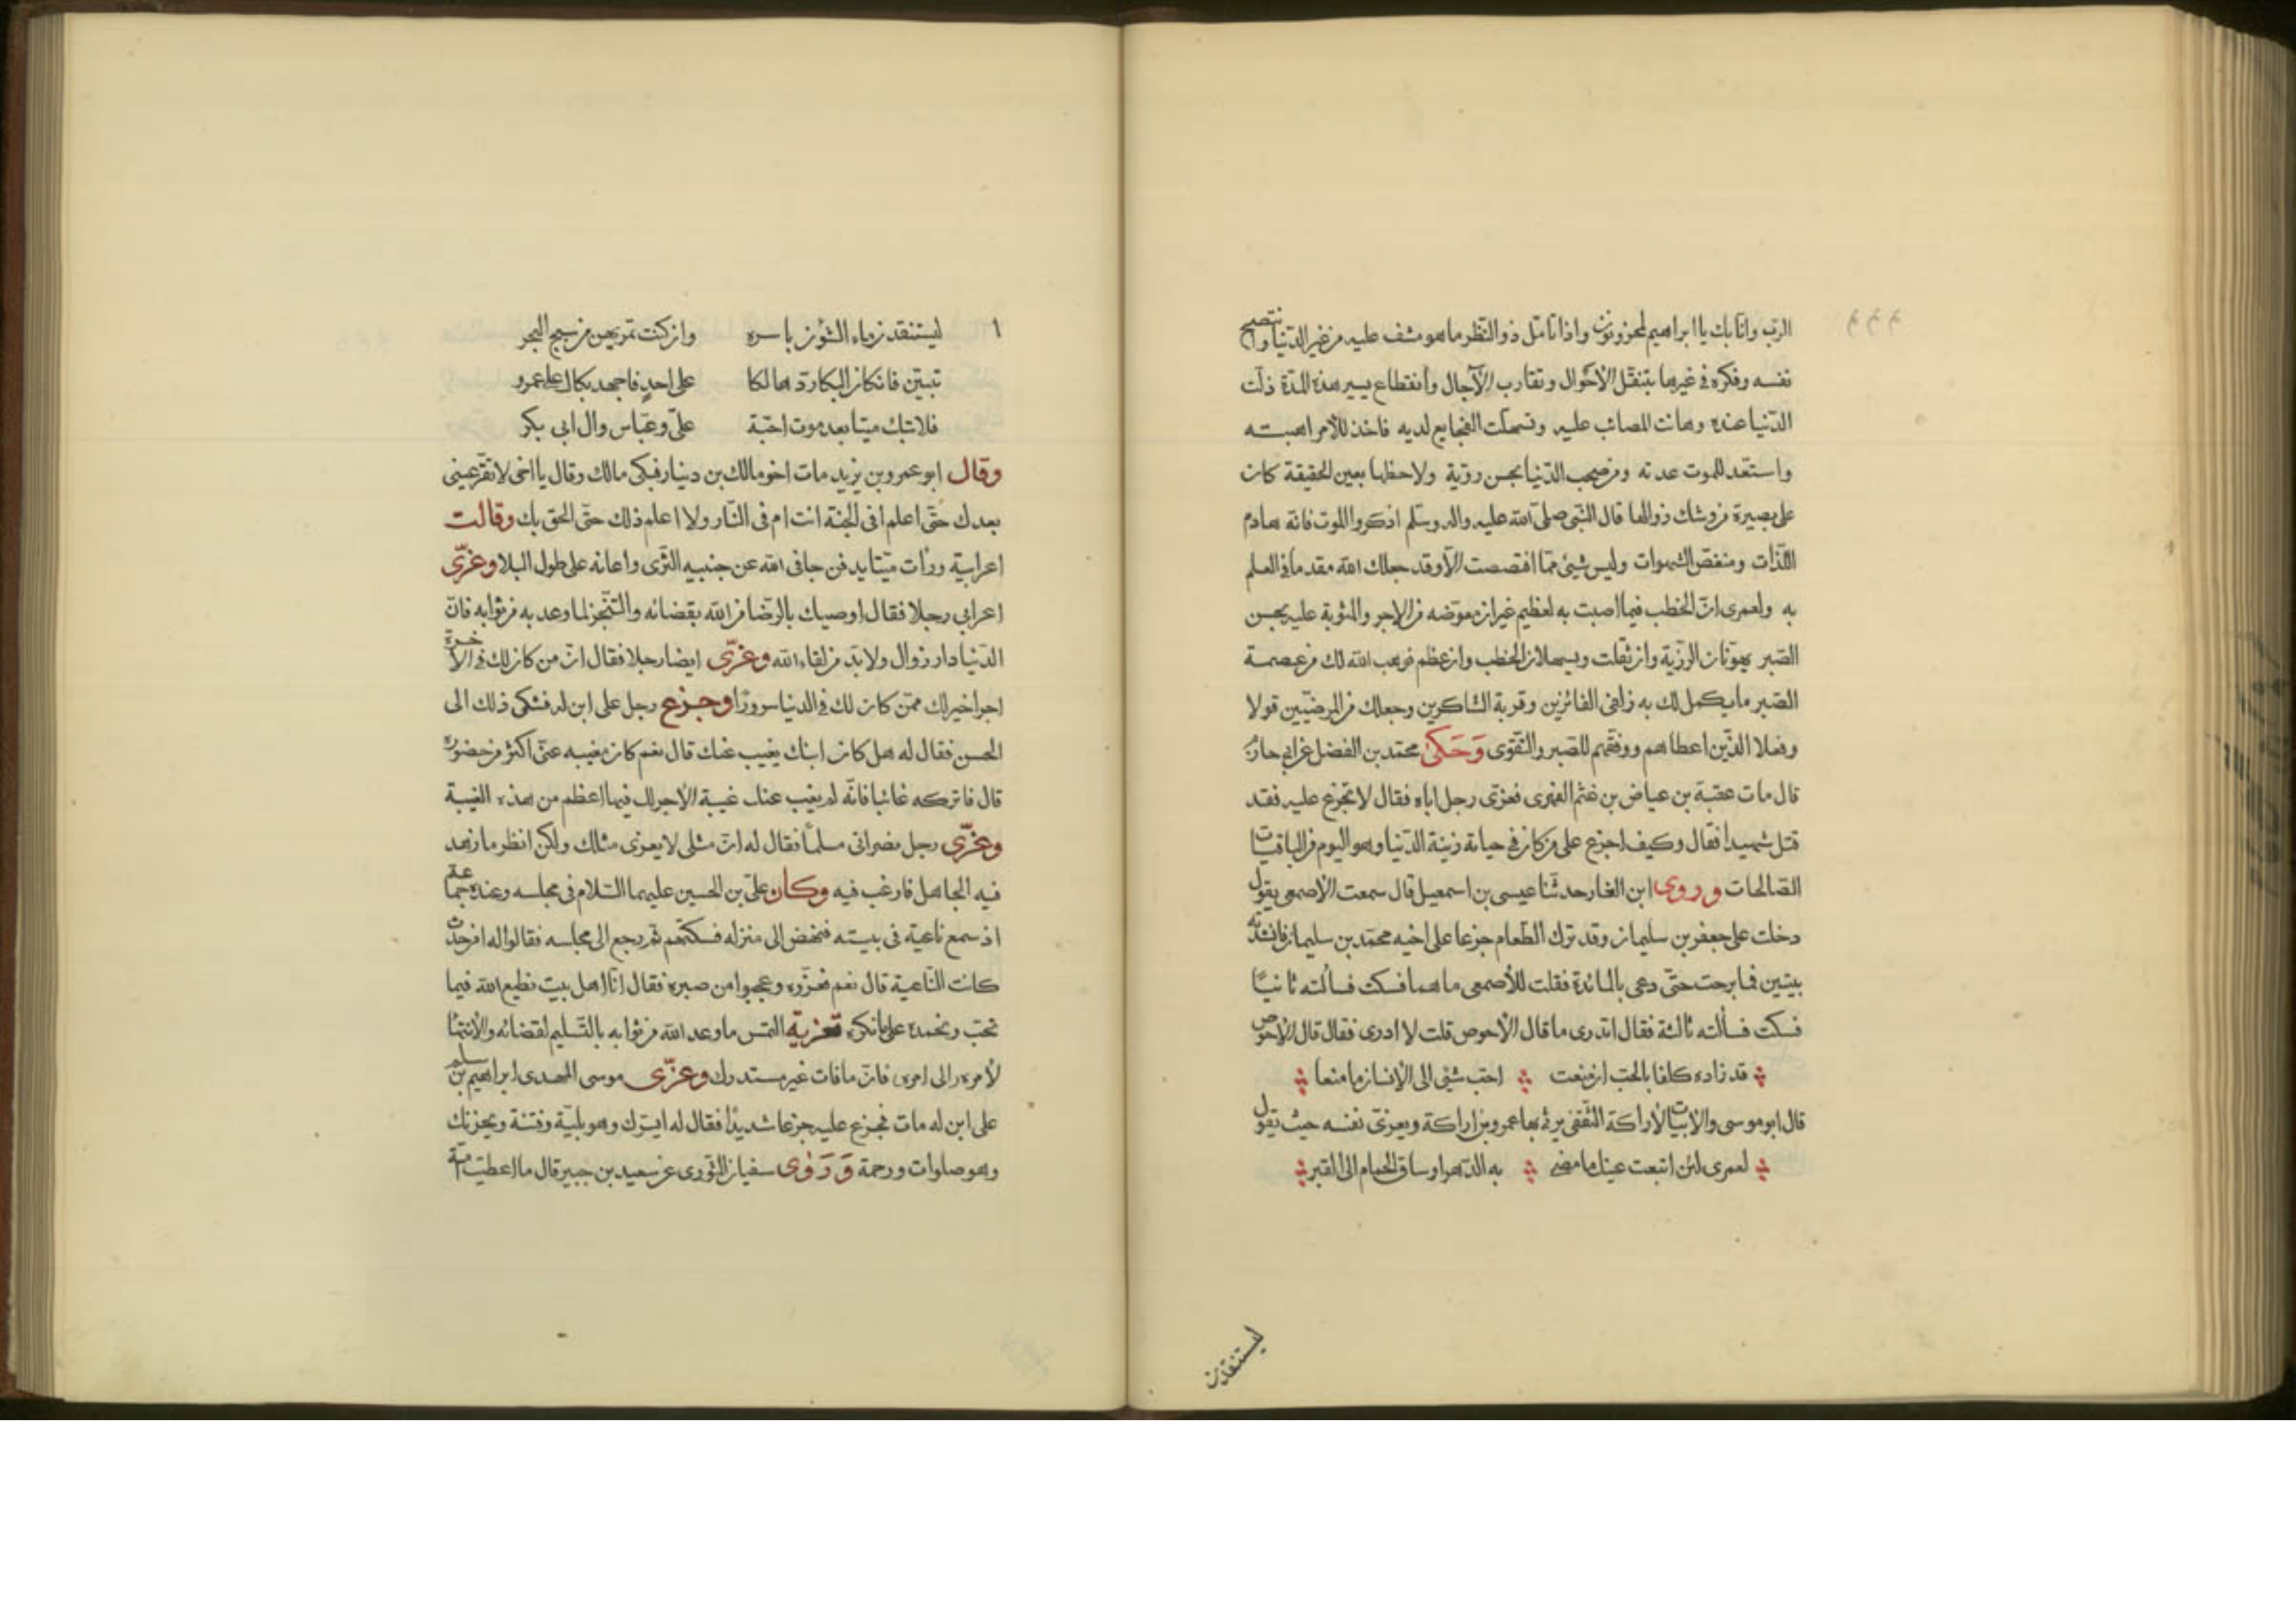 الرّب وانّا بك يا ابراهيم لمحزونون واذا تأمّل ذو النّظر ما هو مشف عليه من غير الدّنيا وانتصح
نفسه وفكره فى غيرها بتنقّل الأحوال وتقارب الآجال وانقطاع يسير هذه المدّة ذلّت
الدّنيا عنده وهانت المصائب عليه وتسهلّت الفجايع لديه فاخذ للأمر اهبته
واستعّد للموت عدته ومن صحب الدّنيا بحسن روّية ولاحظها بعين الحقيقة كان
على بصيرة من وشك زوالها قال النّبى صلى الله عليه واله وسلّم اذكروا الموت فانّه هادم
اللّذات ومنغّص الشهوات وليس شيئ ممّا اقتصصت الاّ وقد جعلك الله مقدما فى العلم
به ولعمرى انّ الخطب فيما اصبت به لعظيم غير ان معوّضه من الاجر والمثوبة عليه بحسن
الصّبر يهوّنان الرزّية وان ثقلت ويسهلان الخطب وان عظم فوهب الله لك من عصمة
الصّبر ما يكمل لك به زلفى الفائزين وقربة الشاكرين وجعلك من المرضيّين قولا
وفعلا الذّين اعطاهم ووفقهم للصّبر والتّقوى وَحَكى محمّد بن الفضل عن ابى حازم
قال مات عقبة بن عياض بن غنم الفهرى فعزّى رجل اباه فقال لا تجزع عليه فقد
قتل شهيداً فقال وكيف اجزع على من كان فى حياته زينة الدّنيا وهو اليوم من الباقيات
الصّالحات وروى ابن الغار حدثنا عيسى بن اسمعيل قال سمعت الأصمعى يقول
دخلت على جعفر بن سليمان وقد ترك الطّعام جزعا على اخيه محمّد بن سليمان فانشدته
بيتين فما برحت حتّى دعى بالمائدة فقلت للأصمعى ما هما فسكت فسألته ثانيّا
فسكت فسألته ثالثة فقال اتدرى ما قال الأحوص قلت لا ادرى فقال قال الأحوص
قد زاده كلفا بالحبّ ان منعت احبّ شئ الى الإنسان ما منعا
قال ابو موسى والأبيات لأراكة الثّقفى يرثى بها عمرو بن اراكة ويعزّى نفسه حيث يقول
لعمرى لئن اتبعت عينك ما مضى به الدّهر او ساق الحمام الى القبر
ليستنفدن
١ ليستنفدن ماء الشّؤن باسره وان كنت تمريهن من سبج البحر
تبيّن فان كان البكا ردّ هالكا على احدٍ فاجهد بكاك على عمرو
فلا تبك ميتا بعد موت احبّة علىّ وعبّاس وال ابى بكر
وقال ابو عمرو بن يزيد مات اخو مالك بن دينار فبكى مالك وقال يا اخى لا تقرّ عينى
بعدك حتّى اعلم افى الجنة انت ام فى النّار ولا اعلم ذلك حتّى الحق بك وقالت
اعرابيّة ورأت ميّتا يدفن جافى الله عن جنبيه الثّرى واعانه على طول البلا وعزّى
اعرابى رجلا فقال اوصيك بالرّضا من الله بقضائه والتّنجّز لما وعد به من ثوابه فانّ
الدّنيا دار زوال ولا بدّ من لقاء الله وعزّى ايضا رجلا فقال انّ من كان لك فى الآخرة
اجرا خير لك ممّن كان لك فى الدنيا سرورًا وجزع رجل على ابن له فشكى ذلك الى
الحسن فقال له هل كان ابنك يغيب عنك قال نعم كان مغيبه عنّى اكثر من حضوره
قال فاتركه غائبا فانّه لم يغب عنك غيبة الأجر لك فيها اعظم من هذه الغيبة
وعزّى رجل نصرانى مسلماً فقال له انّ مثلى لا يعزى مثلك ولكن انظر ما زهد
فيه الجاهل فارغب فيه وكان علىّ بن الحسين عليهما السّلام فى مجلسه وعنده جماعة
اذ سمع ناعية فى بيته فنهض الى منزله فسكتهم ثم رجع الى مجلسه فقالوا له امن حدث
كانت النّاعية قال نعم فعزّوه وعجبوا من صبره فقال انّا اهل بيت نطيع الله فيما
نحبّ ونحمده على ما نكره تعزية التمس ما وعد الله من ثوابه بالتّسليم لقضائه والانتهاء
لأمره الى امره فانّ ما فات غير مستدرك وعزّى موسى المهدى ابراهيم بن سلم
على ابن له مات فجزع عليه جزعا شديدًا فقال له ايسّرك وهو بليّة وفتنة ويحزنك
وهو صلوات ورحمة وَرَوى سفيان الثّورى عن سعيد بن جبير قال ما اعطيت امّة